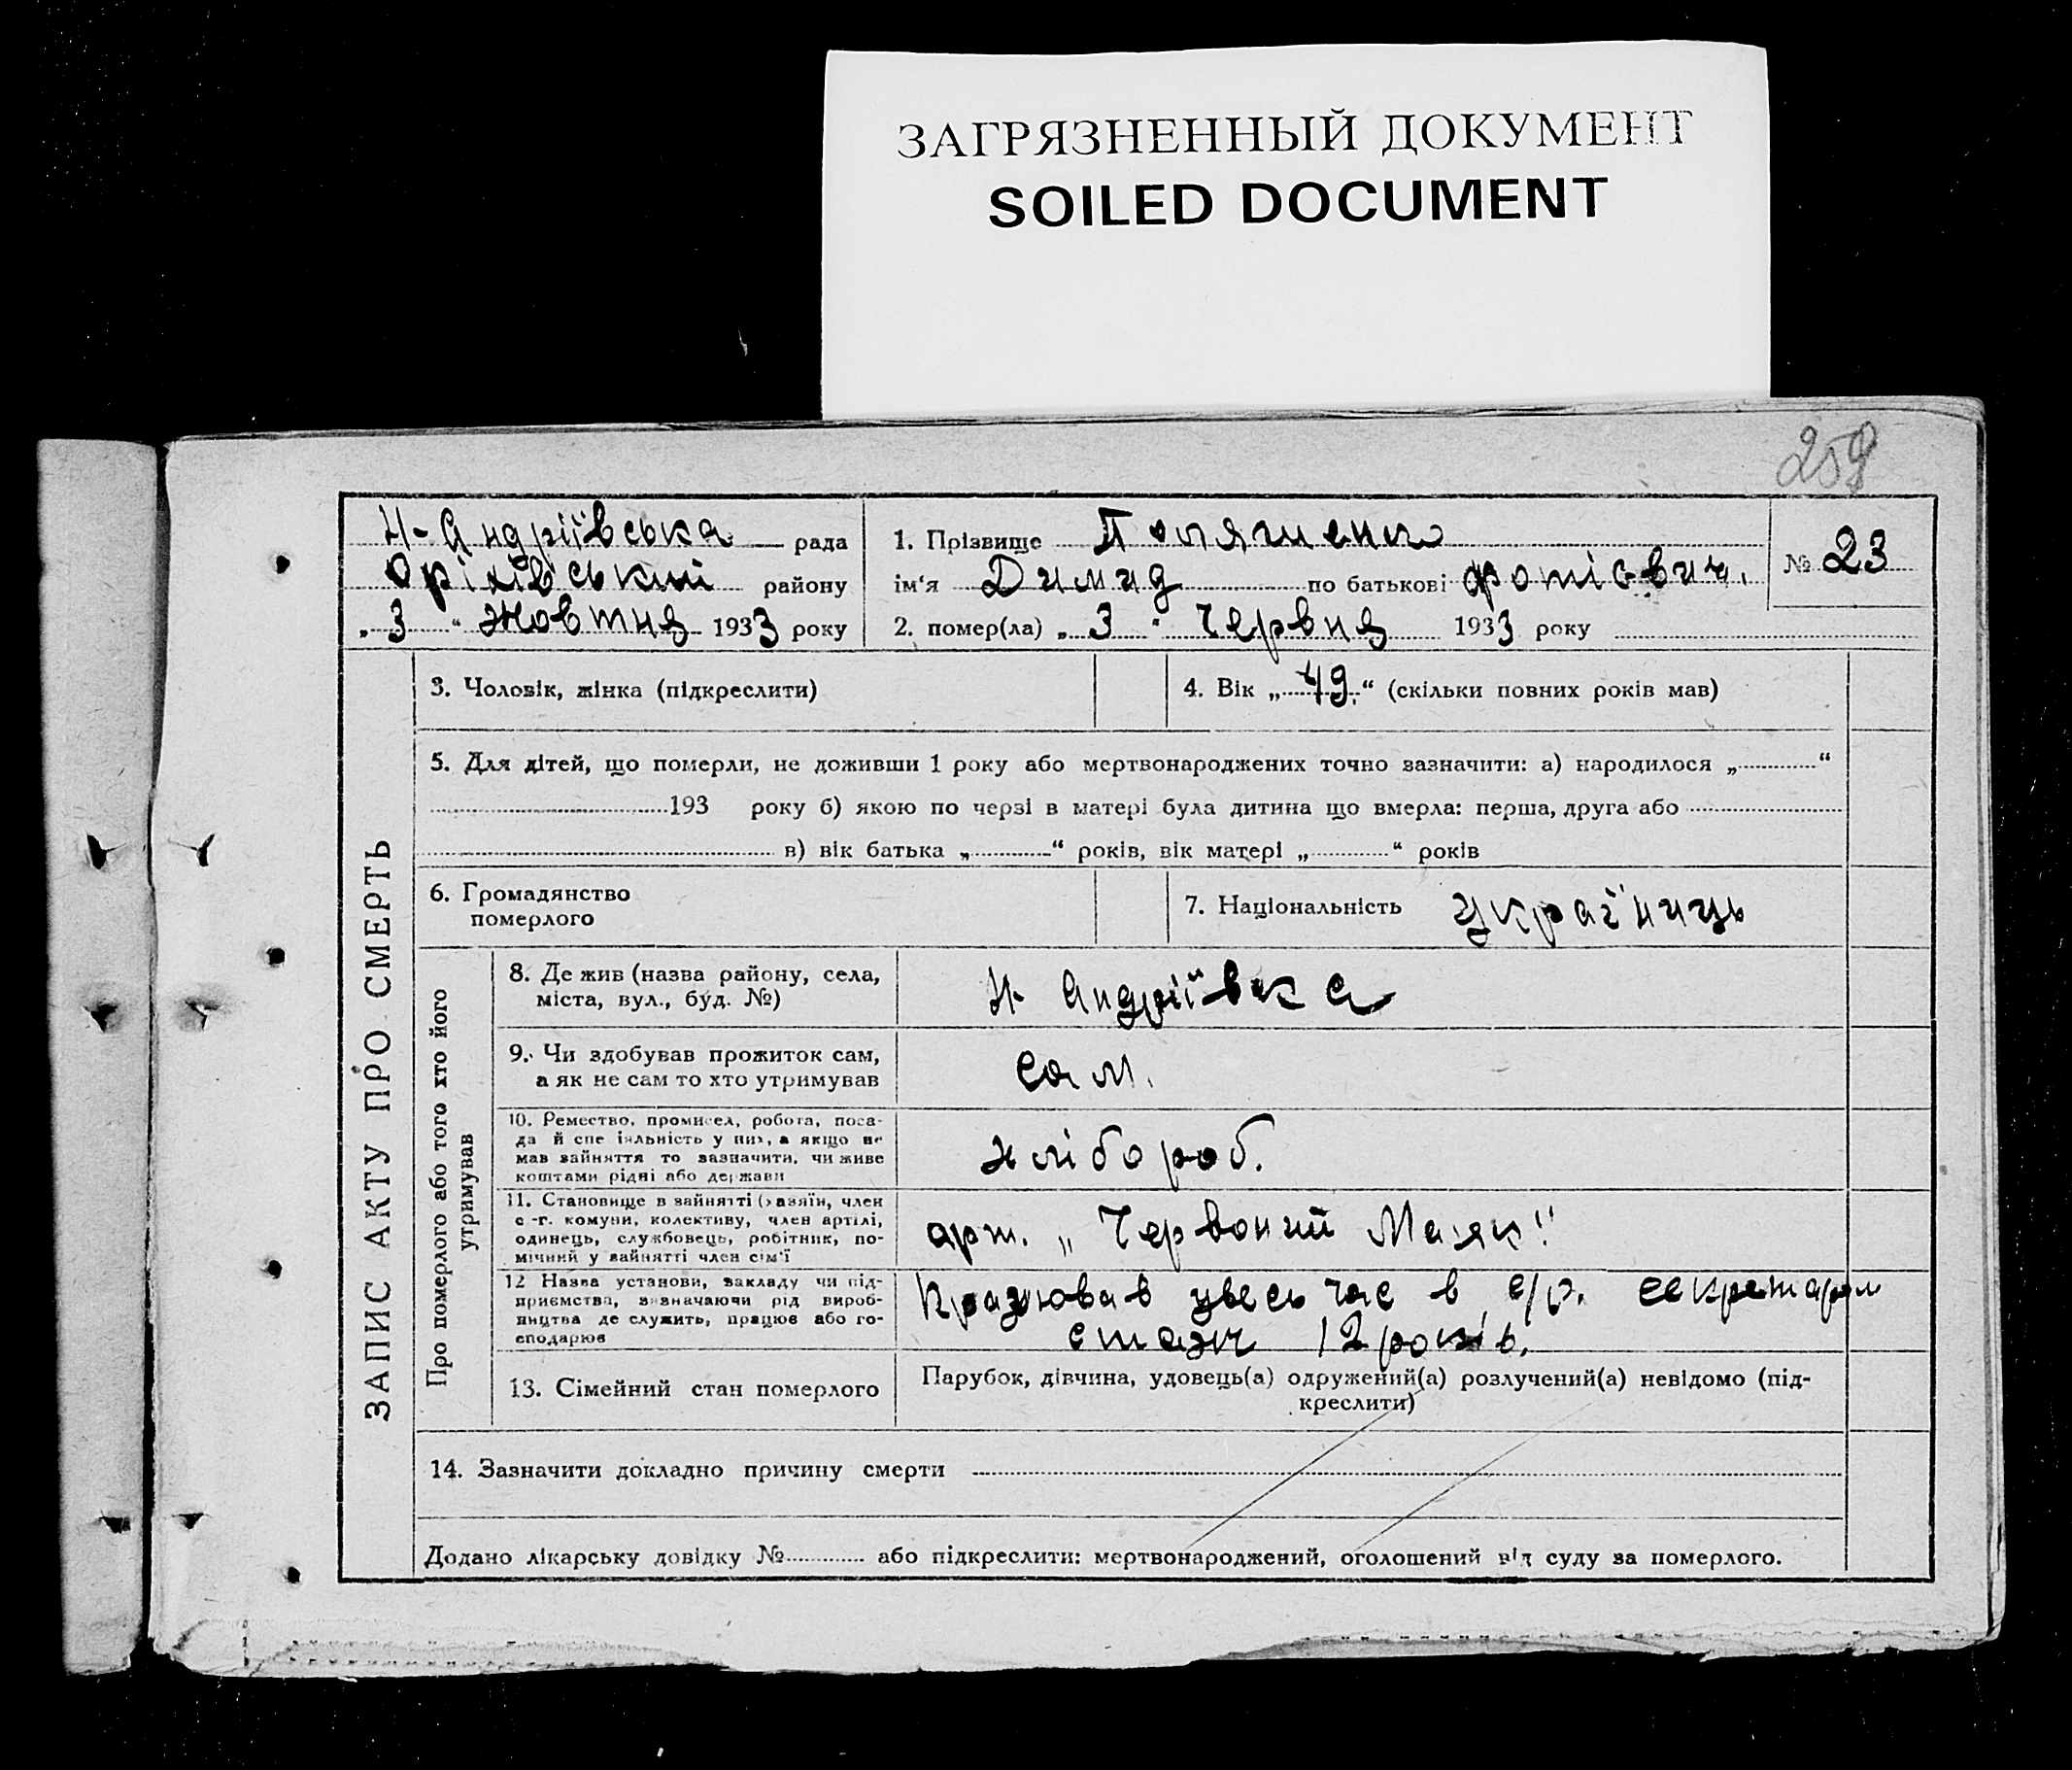 ЗАГРЯЗНЕННЫЙ ДОКУМЕНТ
SOILED DOCUMENT
259
Н-Андріївська рада
Оріхівський району
„3“ Жовтня 1933 року
1. Прізвище
ім‘я Димид по батькові Фотієвич.
2. помер(ла) „3“ Червня 1933 року
№ 23
ЗАПИС АКТУ ПРО СМЕРТЬ
3. Чоловік, жінка (підкреслити)
4. Вік „49.“ (скільки повних років мав)
5. Для дітей, що померли, не доживши 1 року або мертвонароджених точно зазначити: а) народилося „ “
193 року б) якою по черзі в матері була дитина що вмерла: перша, друга або
в) вік батька „ “ років, вік матері „ “ років
6. Громадянство
померлого
7. Національність українць
Про померлого або того хто його
утримував
8. Де жив (назва району, села,
міста, вул., буд. №)
Н-Андріївка
9. Чи здобував прожиток сам,
а як не сам то хто утримував
сам.
10. Ремество, промисел, робота, поса-
да й спеціяльність у них, а якщо не
мав зайняття то зазначити, чи живе
коштами рідні або держави
хлібороб.
11. Становище в зайнятті (хазяїн, член
с.-г. комуни, колективу, член артілі,
одинець, службовець, робітник, по-
мічний у зайнятті член сім'ї
арт. „Червоний Маяк"
12 Назва установи, закладу чи під-
приємства, зазначаючи рід вироб-
ництва де служить, працює або го-
сподарює
Працював увесь час в с/р. секретарем
стаж 12 років.
13. Сімейний стан померлого
Парубок, дівчина, удовець(а) одружений(а) розлучений(а) невідомо (під-
креслити)
14. Зазначити докладно причину смерти
Додано лікарську довідку № або підкреслити: мертвонароджений, оголошений від суду за померлого.